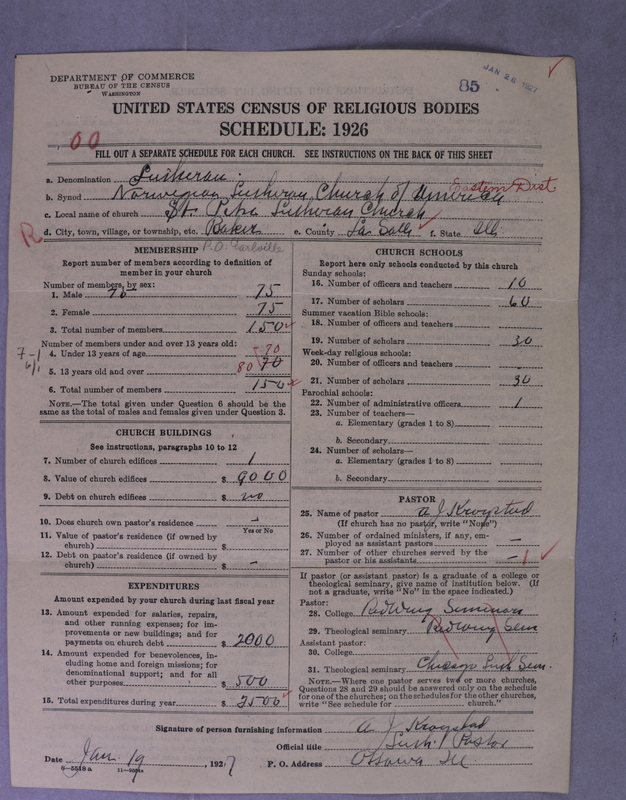 DEPARTMENT OF COMMERCE
BUREAU OF THE CENSUS
WASHINGTON
85
JAN 26 1927
UNITED STATES CENSUS OF RELIGIOUS BODIES
SCHEDULE: 1926
00
FILL OUT A SEPARATE SCHEDULE FOR EACH CHURCH. SEE INSTRUCTIONS ON THE BACK OF THIS SHEET
a. Denomination Lutheran
b. Synod Norwegian Lutheran Church of America Eastern Dist
c. Local name of church St. Petri Lutheran Church
R d. City, town, village, or township, etc. Baker e. County La Salle f. State Ills
MEMBERSHIP P.O. Earlville
Report number of members according to definition of
member in your church
Number of members, by sex:
1. Male 75 75
2. Female 75
3. Total number of members 150
Number of members under and over 13 years old:
4. Under 13 years of age 70
5. 13 years old and over 80 70
6. Total number of members 150
NOTE.—The total given under Question 6 should be the
same as the total of males and females given under Question 3.
CHURCH BUILDINGS
See instructions, paragraphs 10 to 12
7. Number of church edifices 1
8. Value of church edifices $ 9000
9. Debt on church edifices $ no
10. Does church own pastor's residence
Yes or No
11. Value of pastor's residence (if owned by
church) $
12. Debt on pastor's residence (if owned by
church) $ -
EXPENDITURES
Amount expended by your church during last fiscal year
13. Amount expended for salaries, repairs,
and other running expenses; for im-
provements or new buildings; and for
payments on church debt $ 2000
14. Amount expended for benevolences, in-
cluding home and foreign missions; for
denominational support; and for all
other purposes $ 500
15. Total expenditures during year $ 2500
CHURCH SCHOOLS
Report here only schools conducted by this church
Sunday schools:
16. Number of officers and teachers 10
17. Number of scholars 60
Summer vacation Bible schools:
18. Number of officers and teachers
19. Number of scholars 30
Week-day religious schools:
20. Number of officers and teachers
21. Number of scholars 30
Parochial schools:
22. Number of administrative officers 1
23. Number of teachers—
a. Elementary (grades 1 to 8)
b. Secondary
24. Number of scholars—
a. Elementary (grades 1 to 8)
b. Secondary
PASTOR
25. Name of pastor A J Krogstad
(If church has no pastor, write "None")
26. Number of ordained ministers, if any, em-
ployed as assistant pastors —
27. Number of other churches served by the
pastor or his assistants — 1
If pastor (or assistant pastor) is a graduate of a college or
theological seminary, give name of institution below. (If
not a graduate, write "No" in the space indicated.)
Pastor:
28. College Red Wing Seminary
29. Theological seminary Red Wing Sem
Assistant pastor:
30. College
31. Theological seminary Chicago Luth Sem.
NOTE.—Where one pastor serves two or more churches,
Questions 28 and 29 should be answered only on the schedule
for one of the churches; on the schedules for the other churches,
write "See schedule for church."
Signature of person furnishing information A J Krogstad
Official title Luth. Pastor
Date Jan. 19, 1927 P. O. Address Ottawa Ill
8—5518a